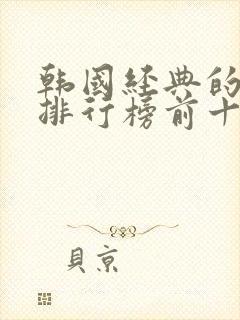 韩國经典的
排行榜前十
貝京